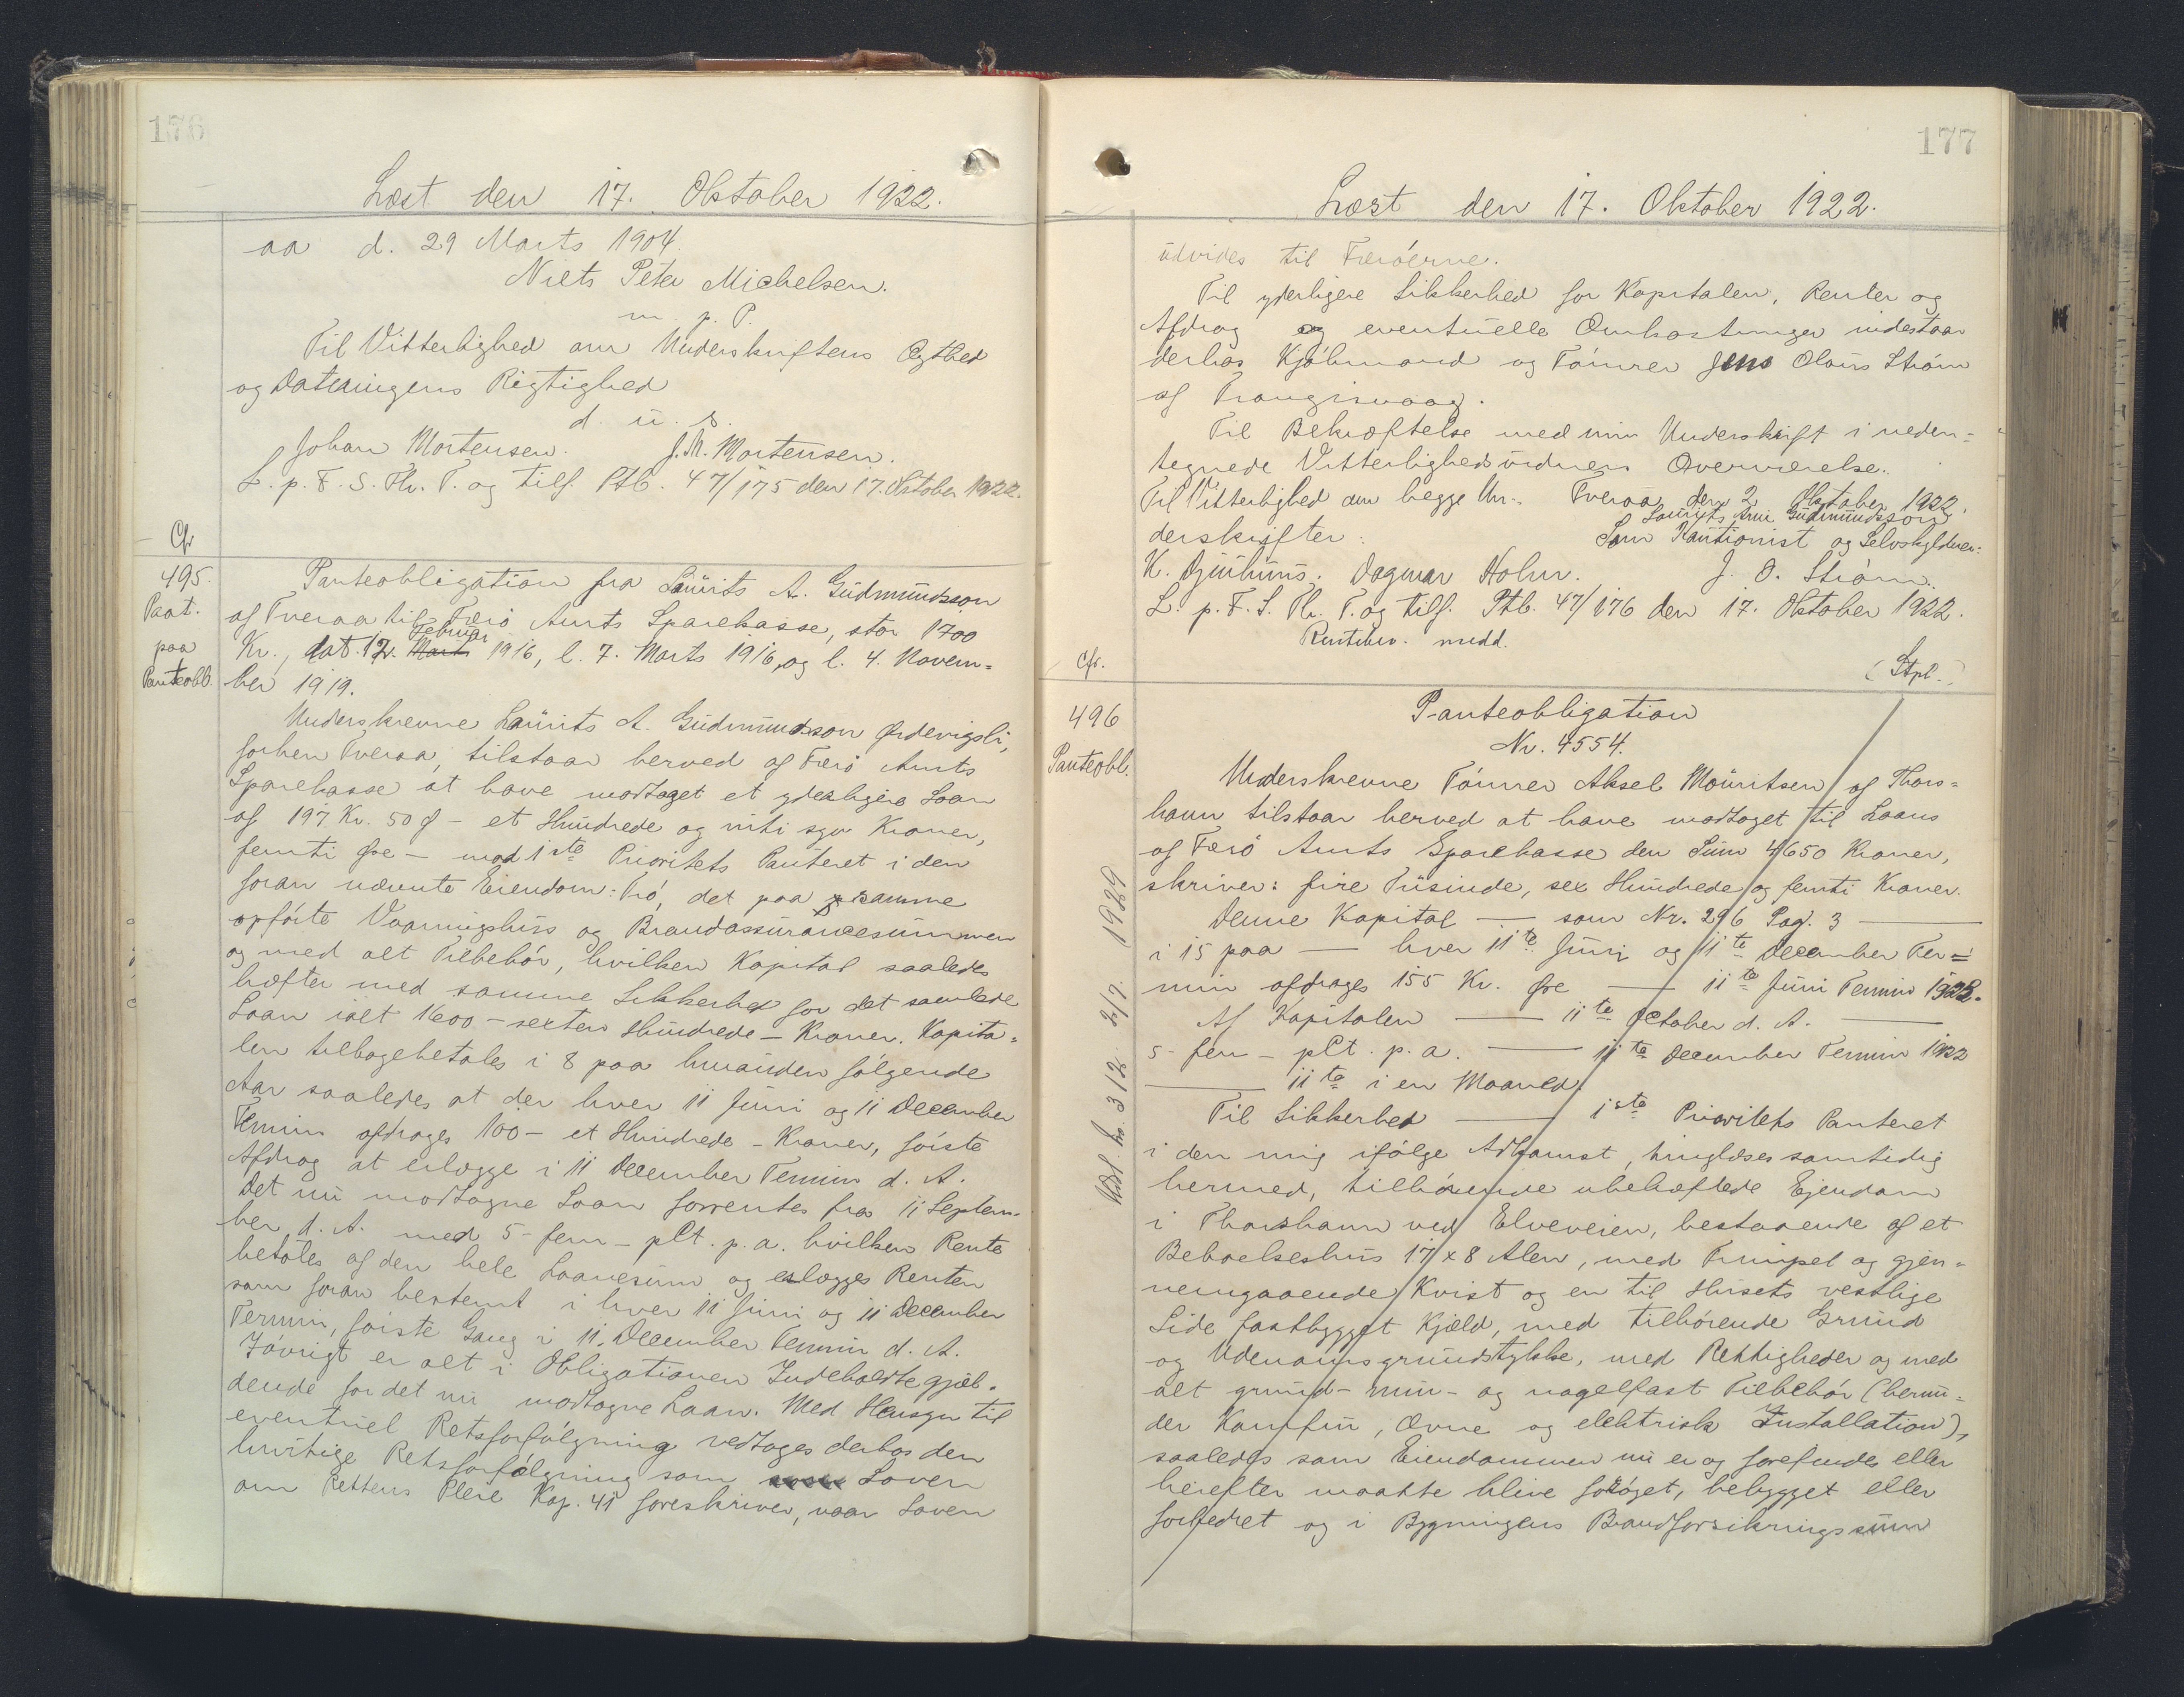 176
Læst den 17. Oktober 1922.
aa d. 29 Marts 1904.
Niels Peter Michelsen.
m. p. P.
Til Vitterlighed om Underskriftens Ægthed
og Dateringens Rigtighed
d. u. s.
Johan Mortensen. J. M. Mortensen.
L. p. F. S. Th. T. og tilf. Ptb. 47/175 den 17. Oktober 1922.
Cfr
495.
Paat.
paa
Panteobl.
Panteobligation fra Laurits A. Gudmundsson
af Tveraa til Færø Amts Sparekasse, stor 1700
Kr., dat. 12. Marts Februar 1916, l. 7. Marts 1916, og l. 4. Novem=
ber 1919.
Underskrevne Laurits A. Gudmundsson Ørdevigsli,
forhen Tveraa, tilstaar herved af Færø Amts
Sparekasse at have modtaget et yderligere Laan
af 197 Kr. 50 Ø - et Hundrede og niti syv Kroner,
femti Øre - mod 1ste Prioritets Panteret i den
foran nævnte Eiendom: Trø, det paa samme
opførte Vaaningshus og Brandassurancesummen
og med alt Tilbehør, hvilken Kapital saaledes
hæfter med samme Sikkerhed for det samlede
Laan ialt 1600 - sexten Hundrede - Kroner. Kapita=
len tilbagebetales i 8 paa hinanden følgende
Aar saaledes at der hver 11 Juni og 11 December
Termin afdrages 100 - et Hundrede - Kroner, første
Afdrag at erlægge i 11 December Termin d. A.
Det nu modtagne Laan forrentes fra 11 Septem-
ber d. A. med 5 - fem - pCt. p. a. hvilken Rente
betales af den hele Laanesum og erlægges Renten
som foran bestemt i hver 11 Juni og 11 December
Termin, første Gang i 11. December Termin d. A.
Iøvrigt er alt i Obligationen Indeholdte gjæl-
dende for det nu modtagne Laan. Med Hensyn til
eventuel Retsforfølgning vedtages derhos den
hurtige Retsforfølgning som Loven
om Rettens Pleie Kap. 41 foreskriver, naar Loven
177
Læst den 17. Oktober 1922.
udvides til Færøerne.
Til yderligere Sikkerhed for Kapitalen, Renter og
Afdrag og eventuelle Omkostninger indestaar
derhos Kjøbmand og Tømrer Jens Olaus Strøm
af Trangisvaag.
Til Bekræftelse med min Underskrift i neden=
tegnede Vitterlighedsvidners Overværelse.
Til Vitterlighed om begge Un-. Tveraa, den 2 Oktober 1922.
Laurits Arni Gudmundsson
derskrifter: Som Kautionist og Selvskyldner:
K. Djurhuus. Dagmar Holm. J. O. Strøm.
L. p. F. S. Th. T. og tilf. Ptb. 47/176 den 17. Oktober 1922.
Rentebev. medd.
(Stpl.)
Cfr.
496
Panteobl.
Udsl. h. 312. 2/7. 1929
Panteobligation
Nr. 4554.
Underskrevne Tømrer Aksel Mouritsen af Thors=
havn tilstaar herved at have modtaget til Laans
af Færø Amts Sparekasse den Sum 4650 Kroner,
skriver: fire Tusinde, sex Hundrede og femti Kroner.
Denne Kapital — som Nr. 296 Pag. 3 —
i 15 paa — hver 11te Juni og 11te December Ter=
min afdrages 155 Kr. Øre — 11te Juni Termin 1923.
Af Kapitalen — 11te October d. A. —
5 - fem - pCt. p. a. — 11te December Termin 1922
— 11te i en Maaned.
Til Sikkerhed — 1ste Prioritets Panteret
i den mig ifølge Adkomst, tinglæses samtidig
hermed, tilhørende ubehæftede Ejendom
i Thorshavn ved Elveveien, bestaaende af et
Beboelseshus 17 x 8 Alen, med Trempel og gjen=
nemgaaende Kvist og en til Husets vestlige
Side fastbygget Kjæld, med tilhørende Grund
og Udenomsgrundstykke, med Rettigheder og med
alt grund- mur- og nagelfast Tilbehør (herun=
der Komfur, Ovne og elektrisk Installation),
saaledes som Eiendommen nu er og forefindes eller
herefter maatte blive forøget, bebygget eller
forbedret og i Bygningens Brandforsikringssum